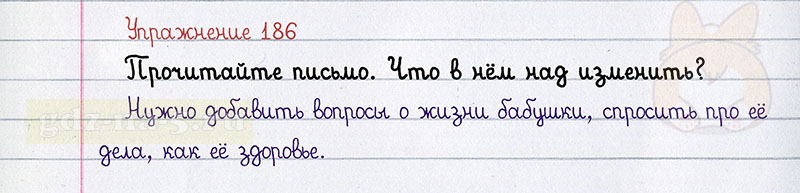 Упражнение 186
Прочитайте письмо. Что в нём над изменить?
Нужно добавить вопросы о жизни бабушки, спросить про её
дела, как её здоровье.